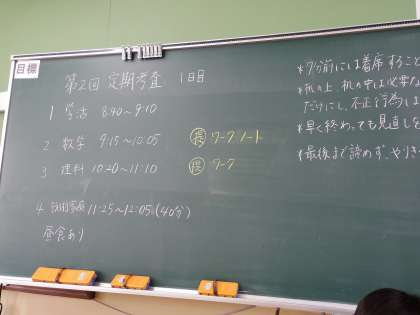 目標
第2回 定期考査 1日目
1 学活 8:40~9:10
2 数学 9:15~10:05 提 ワーク ノート
3 理科 10:20~11:10 提 ワーク
4 技術家庭 11:25~12:05 (40分)
昼食あり
*7分前には着席すること
*机の上、机の中は必要な
だけにし、不正行為は
*早く終わっても見直しを
*最後まで諦めず、やりき